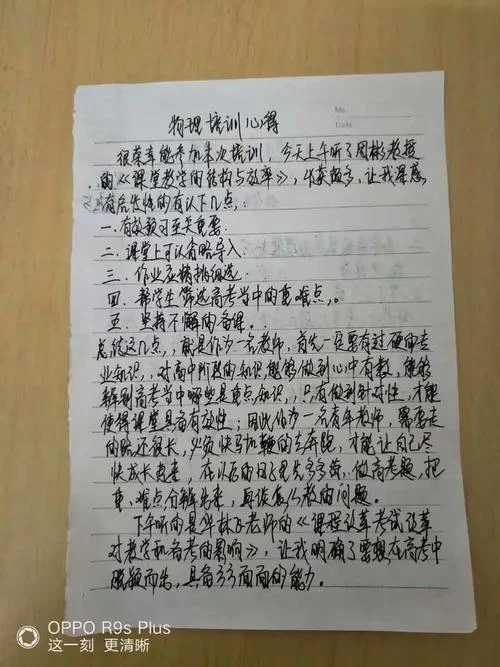 No.
Date
物理培训心得
很荣幸能参加本次培训，今天上午听了周彬老授
的《课堂教学的结构与效率》，收获颇多，让我深感
有启发性的有以下几点：
一．有效预习至关重要．
二．课堂上可以省略导入．
三．作业应精挑细选．
四．帮学生筛选高考当中的重难点。
五．坚持不懈的备课。
总结这几点，就是作为一名老师，首先一定要有过硬的专
业知识，对高中所授的知识能够做到心中有数，能够
解到高考当中哪些是重点知识，只有做到针对性，才能
使得课堂具备有效性；因此作为一名青年老师，需要走
的路还很长，必须快马加鞭的去奔跑，才能让自己尽
快成长起来，在以后的日子里先多多做高考题，把
重、难点分解出来，再谈怎么教的问题。
下午听的是林飞老师的《课程改革考试改革
对教学和备考的影响》，让我明确了要想在高考中
脱颖而出，具备方方面面的能力．
OPPO R9s Plus
这一刻 更清晰